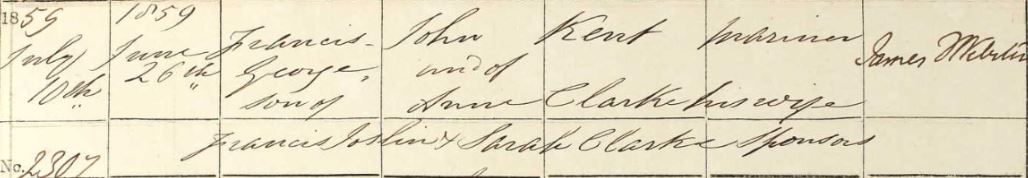 1859 1859 Francis John Kent mariner
July June George, and of James Webster
10th 26th son of Anne Clarke his wife
Francis Joslin & Sarah Clarke Sponsors
No. 2307